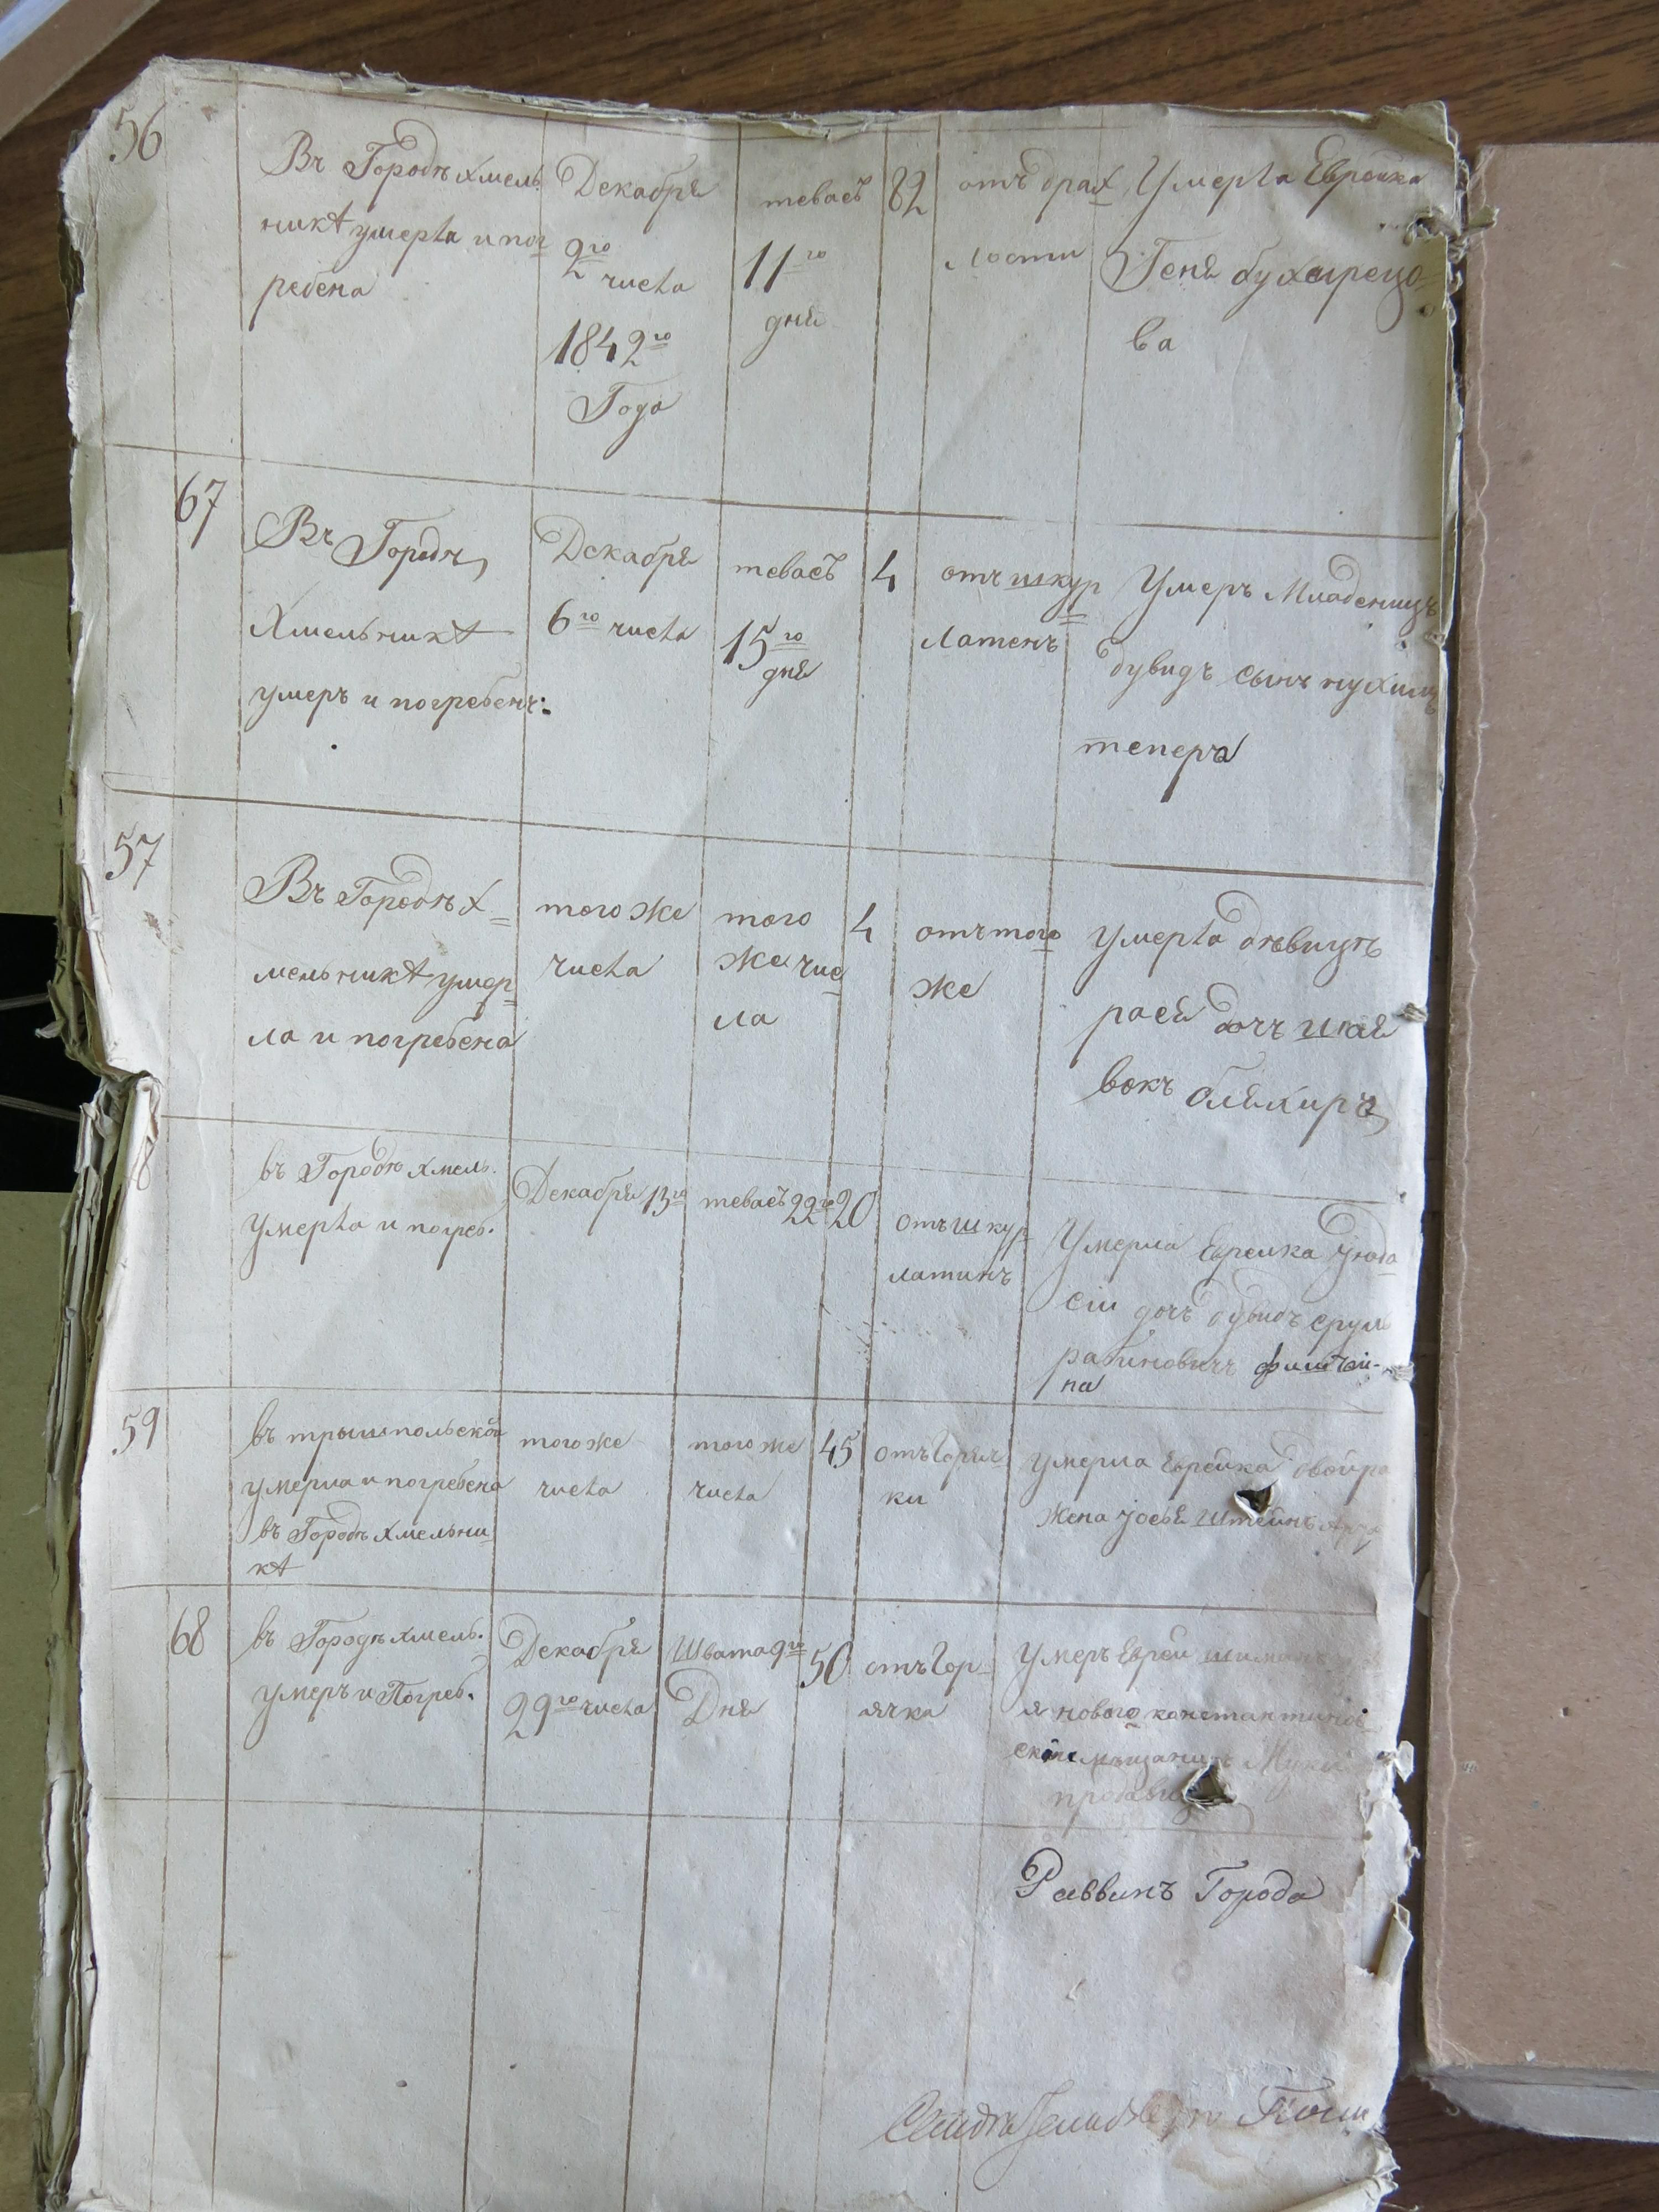 56
Въ Городѣ хмель
никѣ умерла и пог
ребена
Декабря
2го числа
1842го
Года
теваеъ
11го
дня
82
отъ драх
лости
Умерла Еврейка
Геня бухгрецо
ва
67
Въ Городѣ
Хмельникѣ
умеръ и погребенъ:
Декабря
6го числа
теваеъ
15го
дня
4
отъ шкур
латенъ
Умеръ Младеницъ
дувидъ сынъ нухимъ
теперъ
57
Въ Городѣ Х=
мельникѣ умер
ла и погребена
того же
числа
того
же чис
ла
4
отъ того
же
умерла дѣвицѣ
рася дочъ шая
вокъ бляхиръ
8
въ Городѣ хмель.
умерла и погреб.
Декабря 13го
теваеъ 22го
20
отъ шкур
латинъ
Умерла Евреика
сіи дочъ дувидъ сруль
рабиновичъ
на
59
въ трышпольской
умерла и погребена
въ Городѣ хмельни
кѣ
того же
числа
того же
числа
45
отъ Горяч
ки
умерла Евреика двойра
жена іосья Штейнъ
68
въ Городѣ хмель.
умеръ и Погреб.
Декабря
29го числа
Швата 9го
Дня
50
отъ Гор
ячка
умеръ Еврей
нового константинов
мѣщанинъ
Раввинъ Города